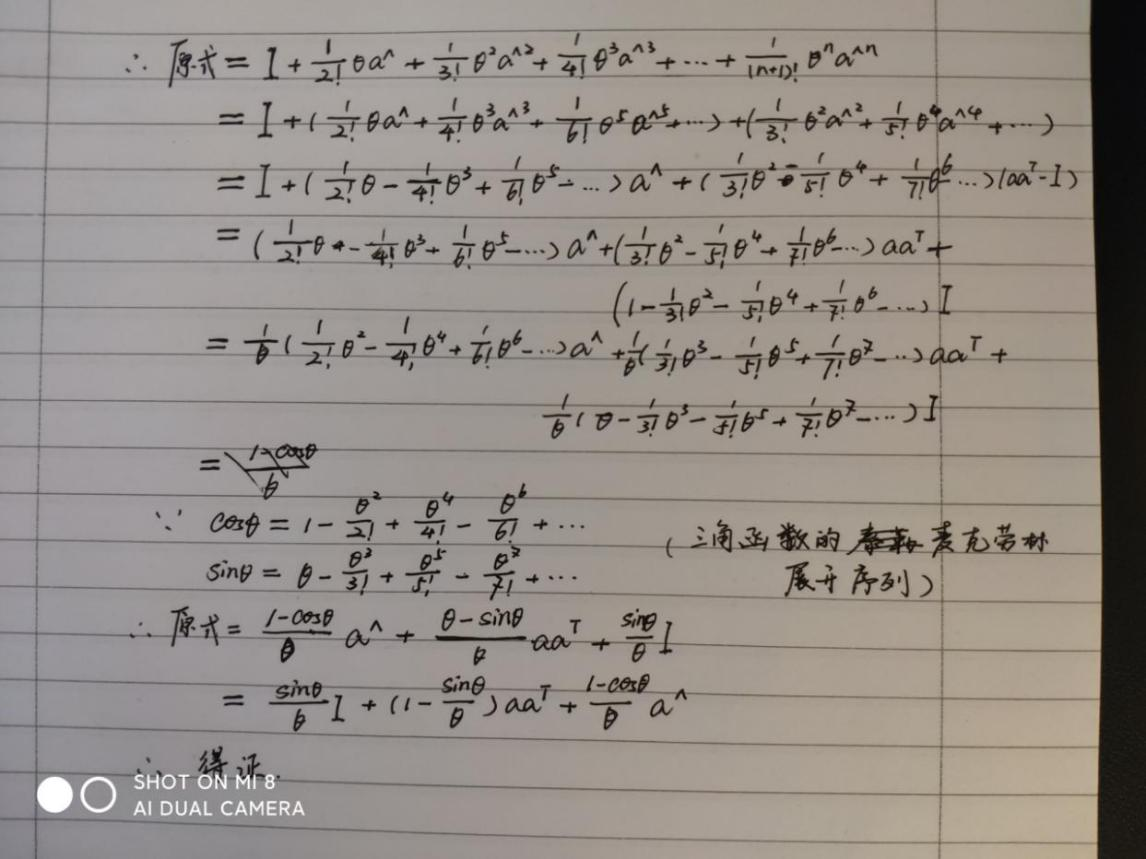 ∴ 原式 = I + 1/2! θa^ + 1/3! θ²a^² + 1/4! θ³a^³ + ··· + 1/(n+1)! θⁿa^ⁿ
= I + ( 1/2! θa^ + 1/4! θ³a^³ + 1/6! θ⁵a^⁵ + ··· ) + ( 1/3! θ²a^² + 1/5! θ⁴a^⁴ + ··· )
= I + ( 1/2! θ - 1/4! θ³ + 1/6! θ⁵ - ··· ) a^ + ( 1/3! θ² - 1/5! θ⁴ + 1/7! θ⁶ ··· ) (aaᵀ - I)
= ( 1/2! θ - 1/4! θ³ + 1/6! θ⁵ - ··· ) a^ + ( 1/3! θ² - 1/5! θ⁴ + 1/7! θ⁶ - ··· ) aaᵀ +
( 1 - 1/3! θ² - 1/5! θ⁴ + 1/7! θ⁶ - ··· ) I
= 1/θ ( 1/2! θ² - 1/4! θ⁴ + 1/6! θ⁶ - ··· ) a^ + 1/θ ( 1/3! θ³ - 1/5! θ⁵ + 1/7! θ⁷ - ··· ) aaᵀ +
1/θ ( θ - 1/3! θ³ - 1/5! θ⁵ + 1/7! θ⁷ - ··· ) I
= (1-cosθ)/θ
∵ cosθ = 1 - θ²/2! + θ⁴/4! - θ⁶/6! + ···
sinθ = θ - θ³/3! + θ⁵/5! - θ⁷/7! + ···
( 三角函数的 麦克劳林
展开序列 )
∴ 原式 = (1-cosθ)/θ a^ + (θ-sinθ)/θ aaᵀ + sinθ/θ I
= sinθ/θ I + (1 - sinθ/θ) aaᵀ + (1-cosθ)/θ a^
∴ 得证.
SHOT ON MI 8
AI DUAL CAMERA